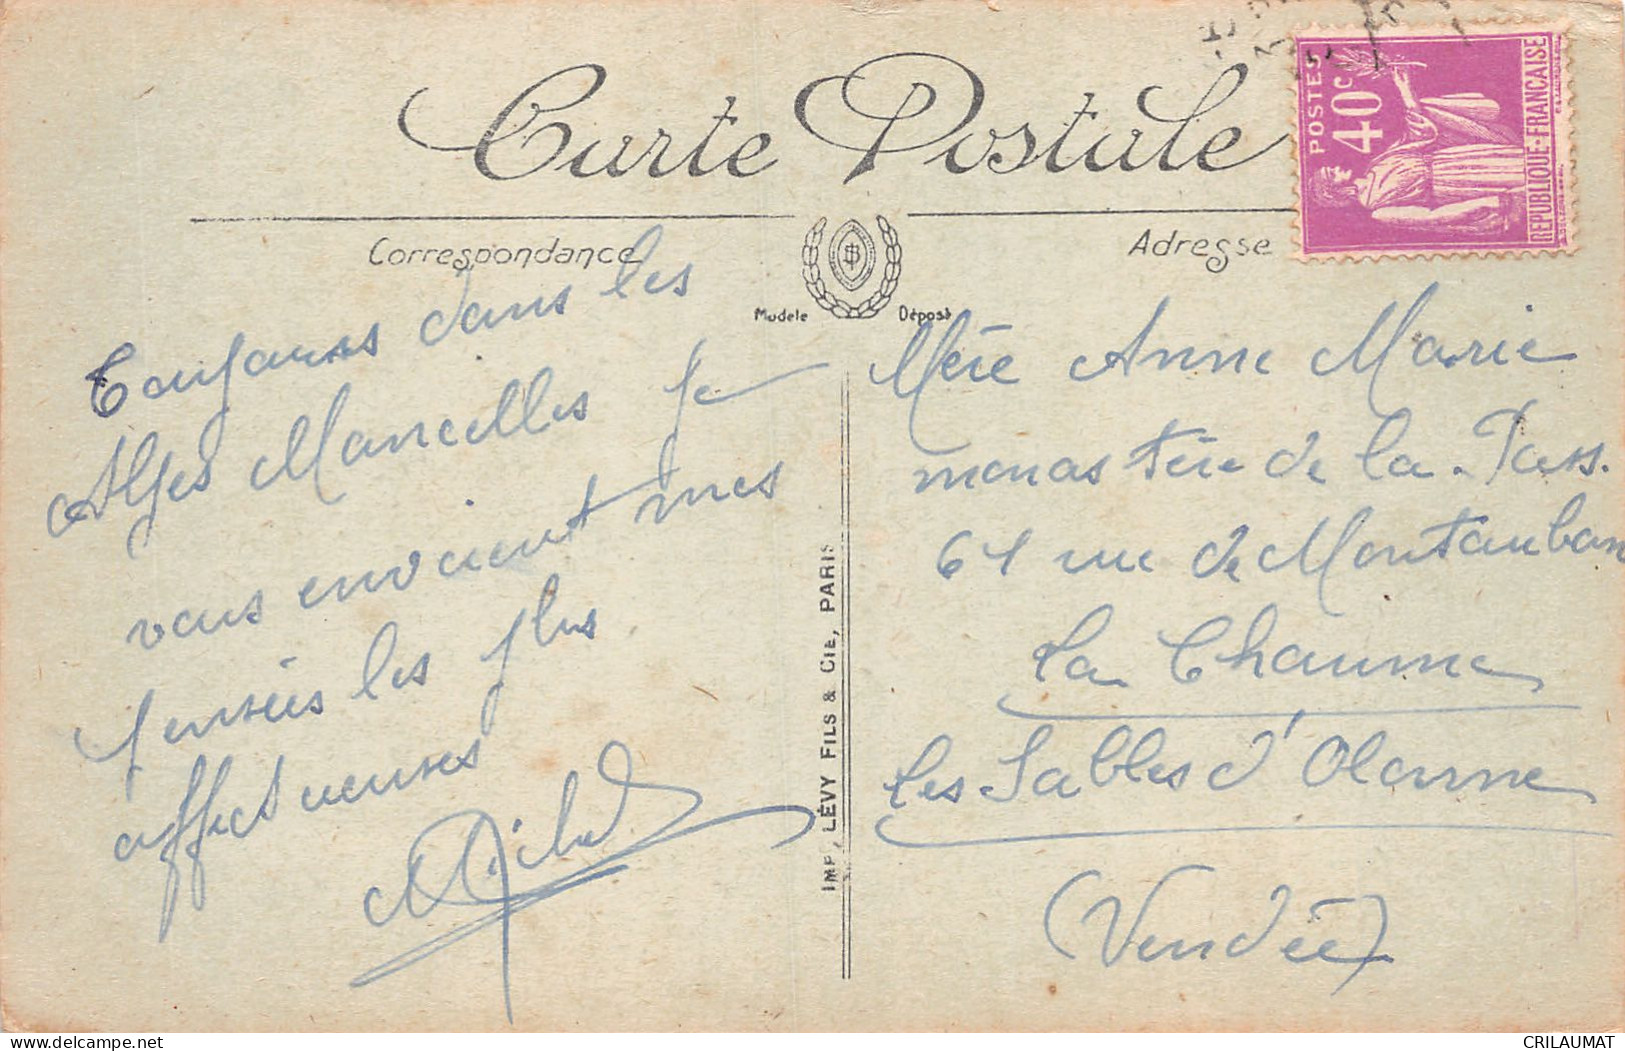 Carte Postale
POSTES
40c
REPUBLIQUE-FRANÇAISE
Correspondance
Adresse
Modèle Déposé
Toujours dans les
Alpes Mancelles je
vous envoient mes
pensées les plus
affectueuses
Mère Anne Marie
monastère de la Pass.
61 rue de Montauban
La Chaume
Les Sables d'Olonne
(Vendée)
IMP. LÉVY FILS & CIE, PARIS
CRILAUMAT